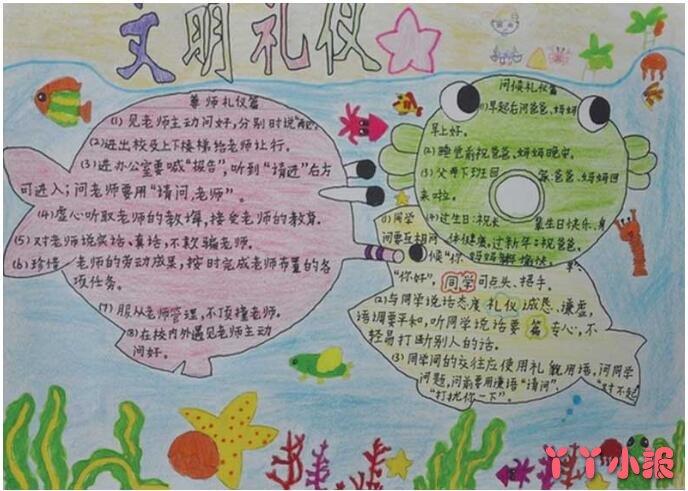 文明礼仪
尊师礼仪篇
(1) 见老师主动问好，分别时说
(2) 进出校及上下楼梯给老师让行。
(3) 进办公室要喊“报告”，听到“请进”后方
可进入；问老师要用“请问，老师”。
(4) 虚心听取老师的教诲，接受老师的教育。
(5) 对老师说实话、真话，不欺骗老师。
(6) 珍惜老师的劳动成果，按时完成老师布置的各
项任务。
(7) 服从老师管理，不顶撞老师。
(8) 在校内外遇见老师主动
问好。
问候礼仪篇
(1) 早起后问爸爸、妈妈
早上好。
(2) 睡觉前祝爸爸、妈妈晚安。
(3) 父母下班回
爸爸、妈妈回
来啦。
(4) 过生日：祝长
生日快乐、身
体健康。过新年：祝爸爸、
妈妈
愉快。
同学
礼仪
篇
(1) 同学
间要互相问
候“你
“你好”，
可点头、招手。
(2) 与同学说话态度
诚恳、谦虚，
语调要平和，听同学说话要
专心，不
轻易打断别人的话。
(3) 同学间的交往应使用礼貌用语，问同学
问题，问前要用谦语“请问”、“对不起
“打扰你一下”。
丫丫小报